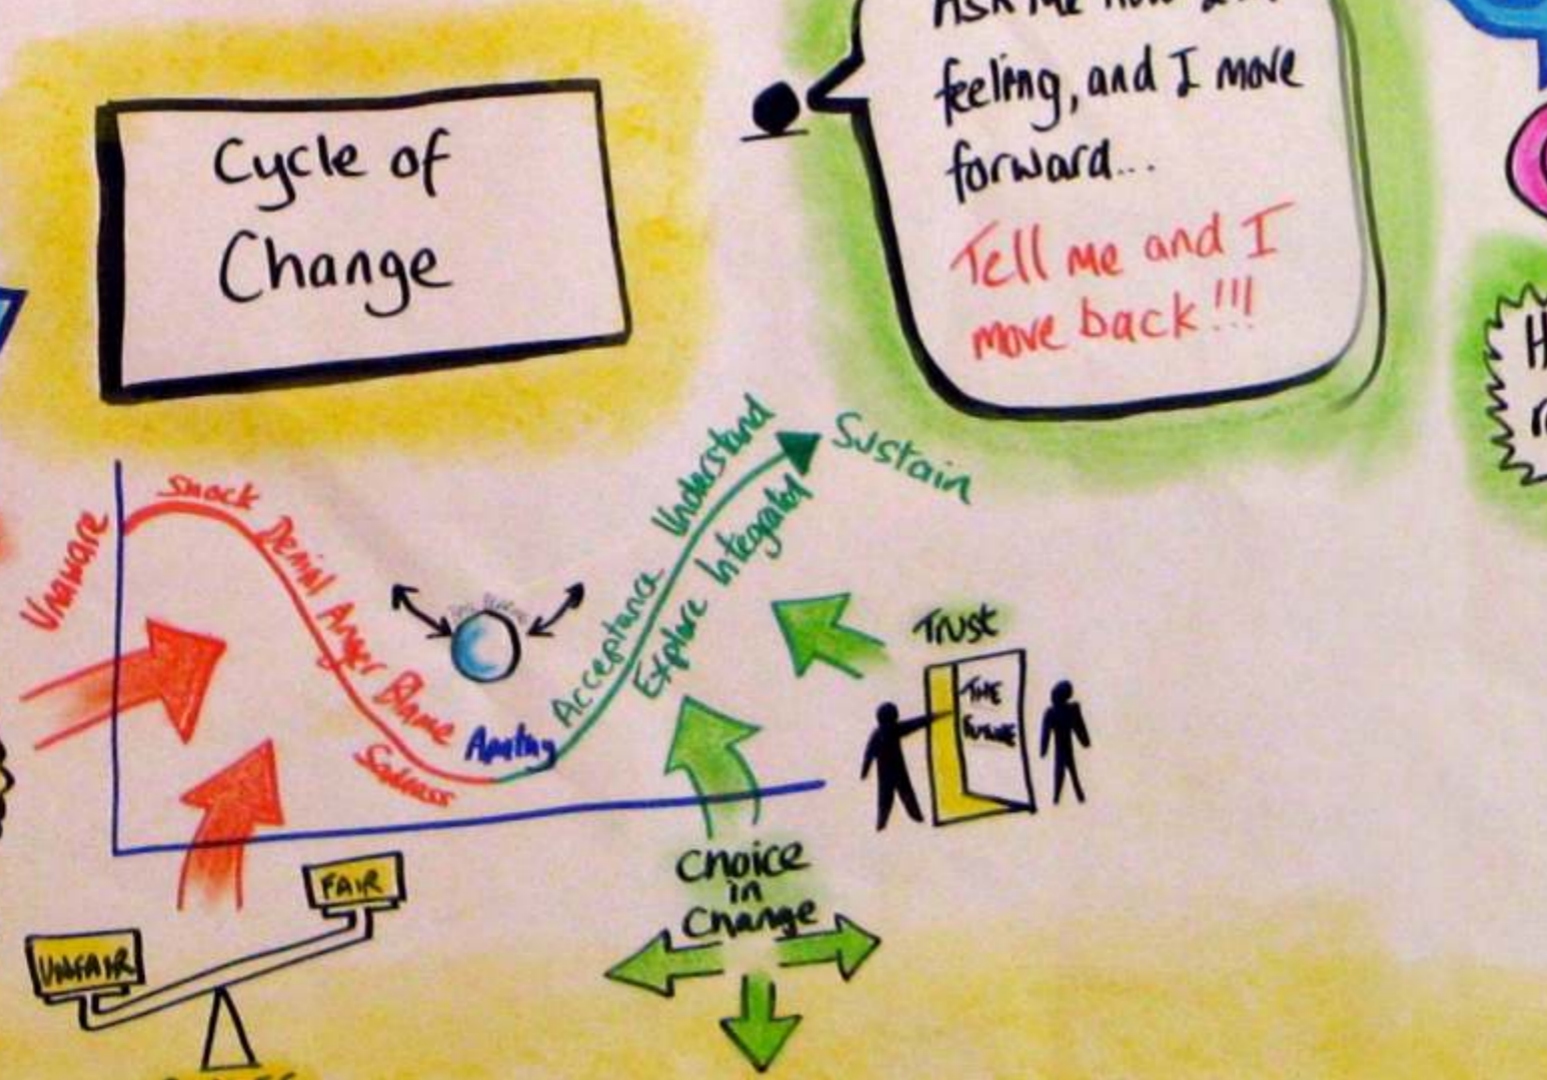 Cycle of
Change
Ask me how I'm
feeling, and I move
forward...
Tell me and I
move back!!!
Unaware
Shock
Denial
Anger
Blame
Sadness
Apathy
Acceptance
Explore
Understand
Integrated
Sustain
Trust
THE
FUTURE
Choice
in
Change
FAIR
UNFAIR